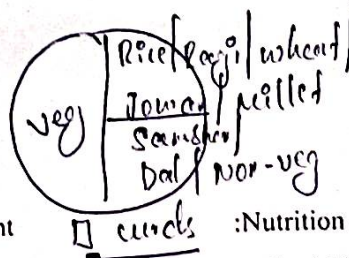 Rice/Ragi/wheat/
veg
Jowar/Millet
Sambher/
Dal/Non-veg
nt □ curds :Nutrition